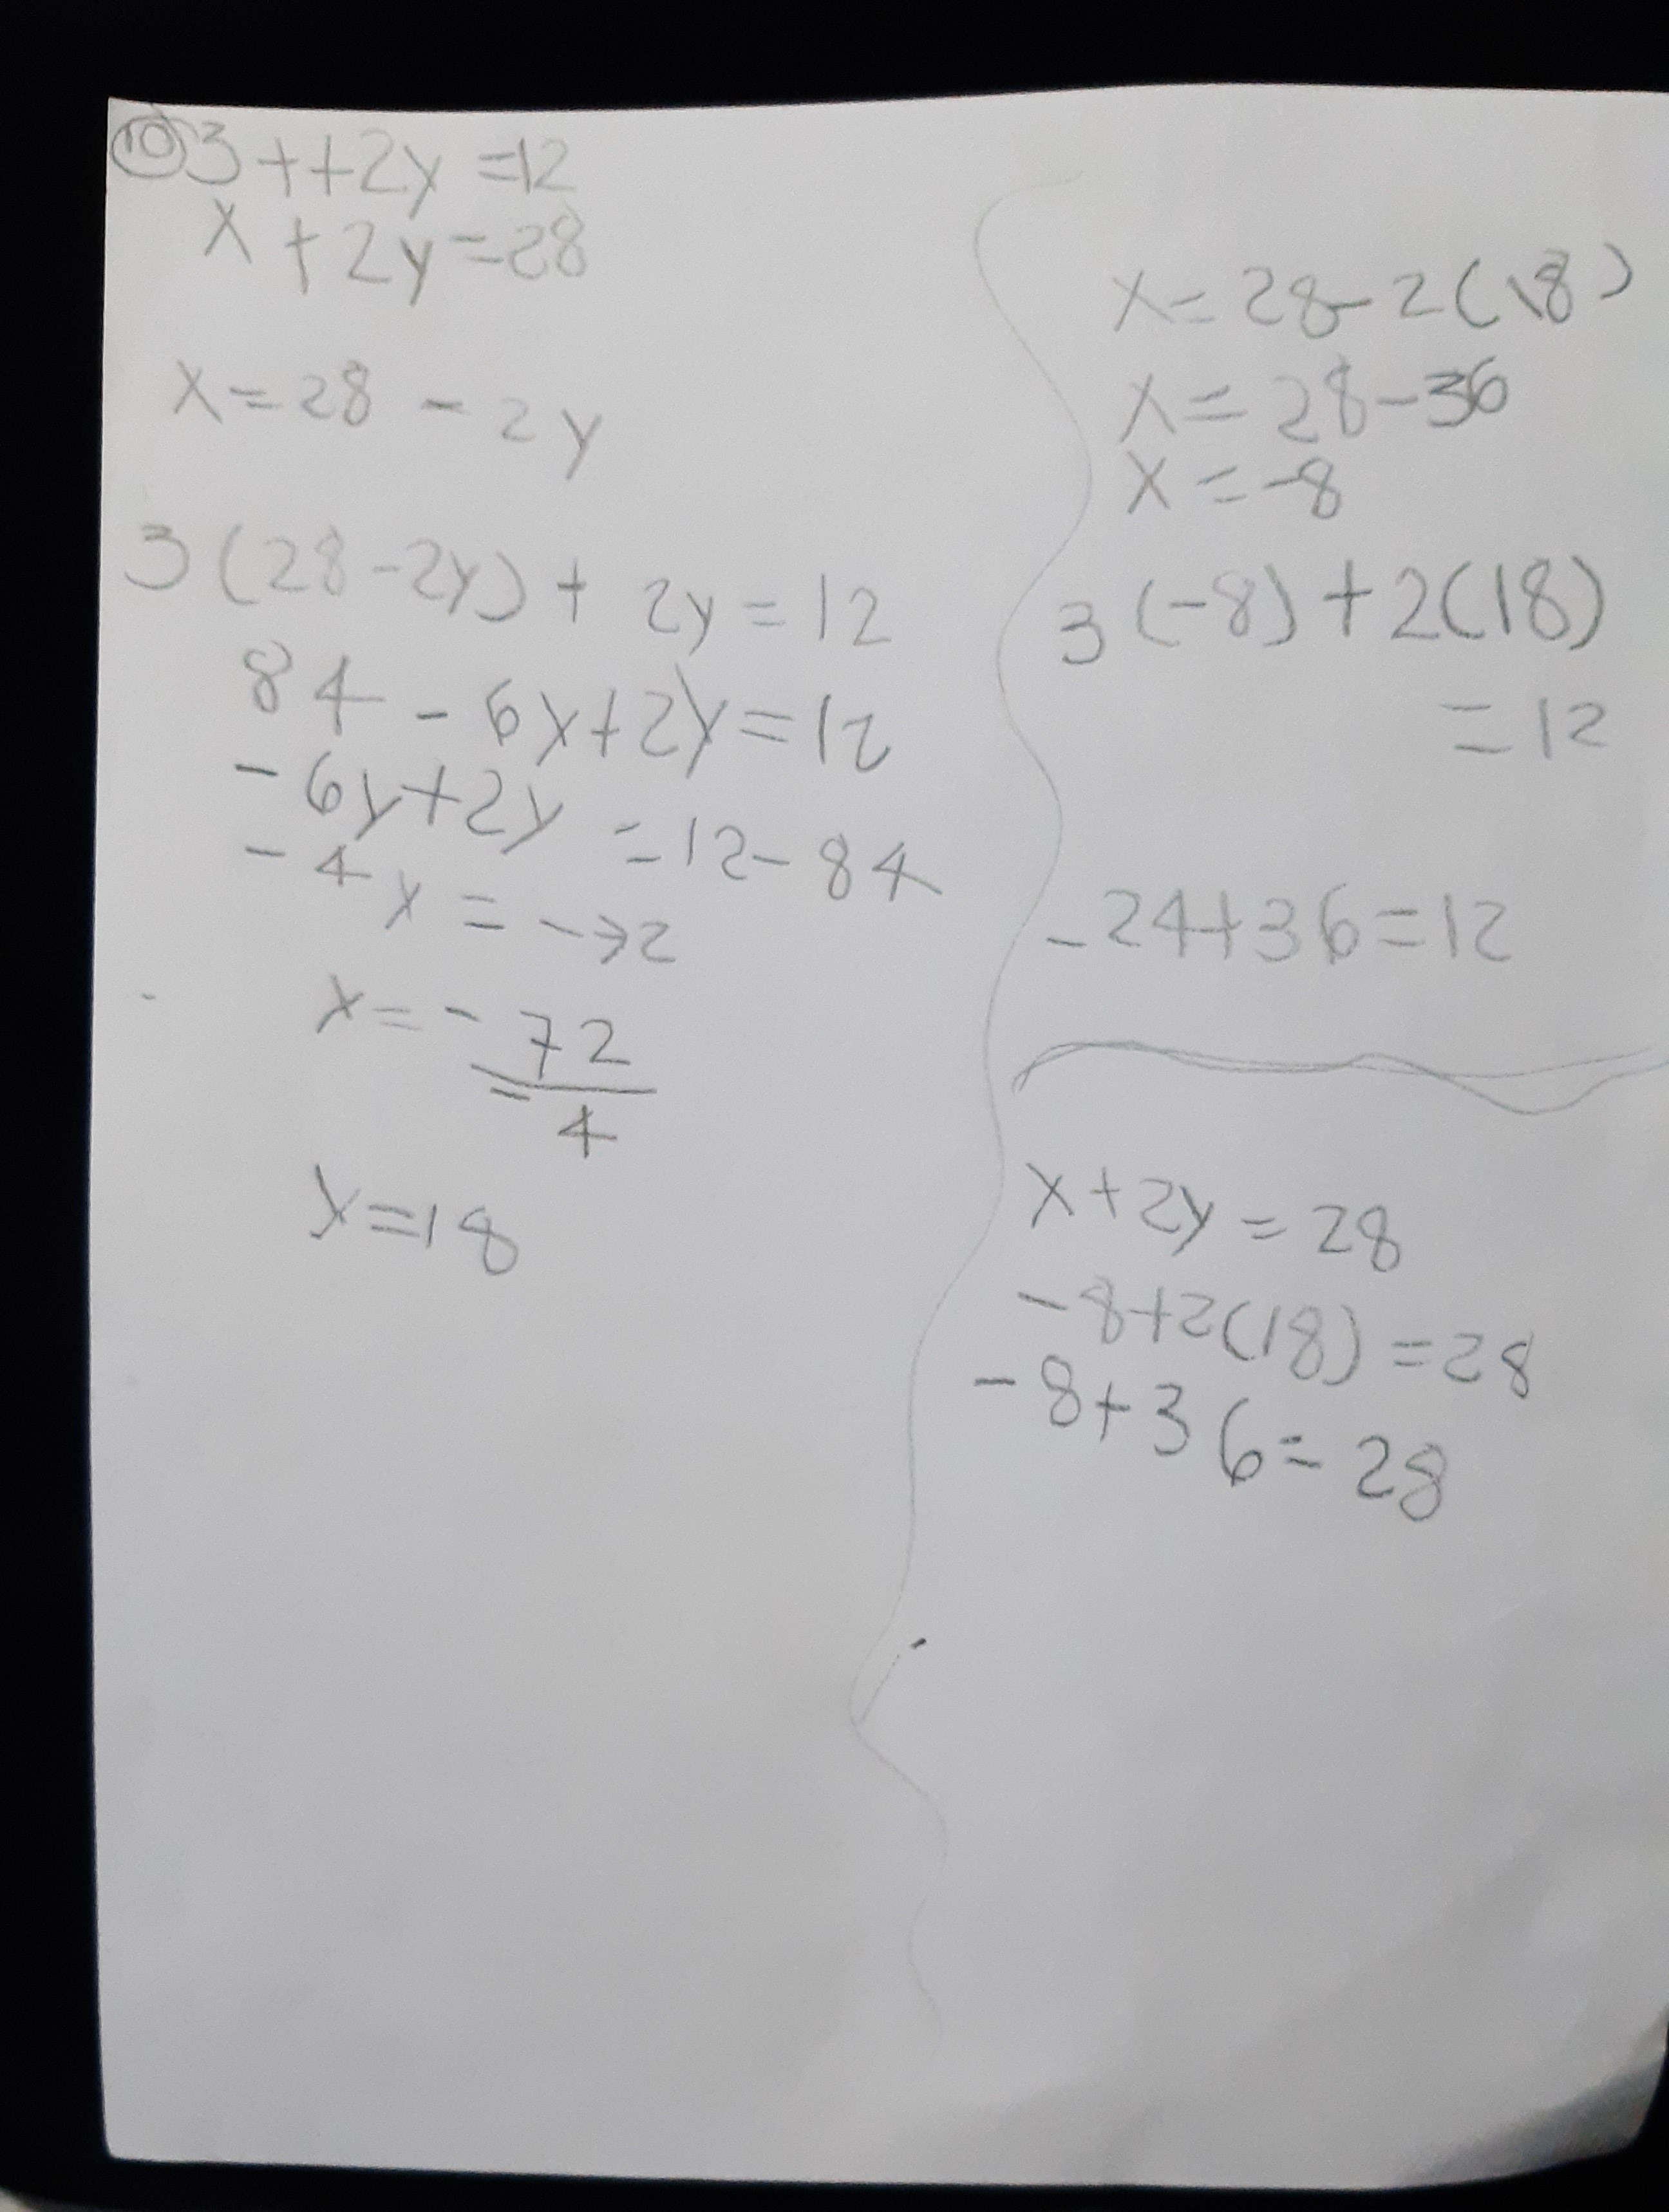 ⑩ 3++2y=12
x+2y=28
x=28-2y
3(28-2y)+2y=12
84-6y+2y=12
-6y+2y=12-84
-4y=-72
y=-72
-4
y=18
x=28-2(18)
x=28-36
x=-8
3(-8)+2(18)
=12
-24+36=12
x+2y=28
-8+2(18)=28
-8+36=28